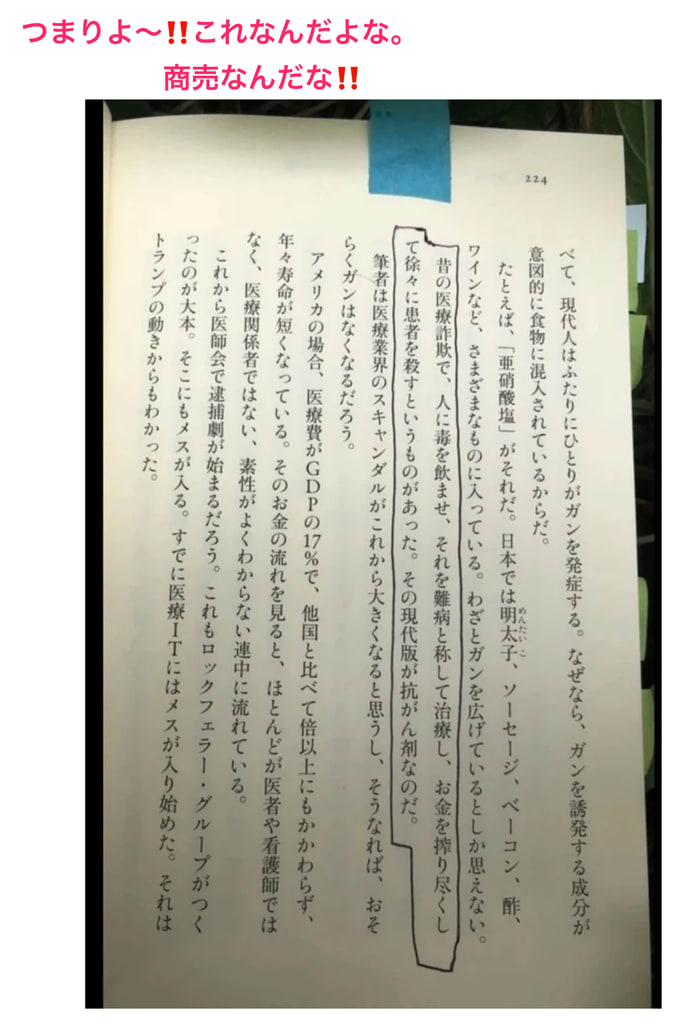 つまりよ〜‼️これなんだよな。
商売なんだな‼️
224
べて、現代人はふたりにひとりがガンを発症する。なぜなら、ガンを誘発する成分が
意図的に食物に混入されているからだ。
たとえば、「亜硝酸塩」がそれだ。日本では明太子、ソーセージ、ベーコン、酢、
めんたいこ
ワインなど、さまざまなものに入っている。わざとガンを広げているとしか思えない。
昔の医療詐欺で、人に毒を飲ませ、それを難病と称して治療し、お金を搾り尽くし
て徐々に患者を殺すというものがあった。その現代版が抗がん剤なのだ。
筆者は医療業界のスキャンダルがこれから大きくなると思うし、そうなれば、おそ
らくガンはなくなるだろう。
アメリカの場合、医療費がGDPの17%で、他国と比べて倍以上にもかかわらず、
年々寿命が短くなっている。そのお金の流れを見ると、ほとんどが医者や看護師では
なく、医療関係者ではない、素性がよくわからない連中に流れている。
これから医師会で逮捕劇が始まるだろう。これもロックフェラー・グループがつく
ったのが大本。そこにもメスが入る。すでに医療ITにはメスが入り始めた。それは
トランプの動きからもわかった。